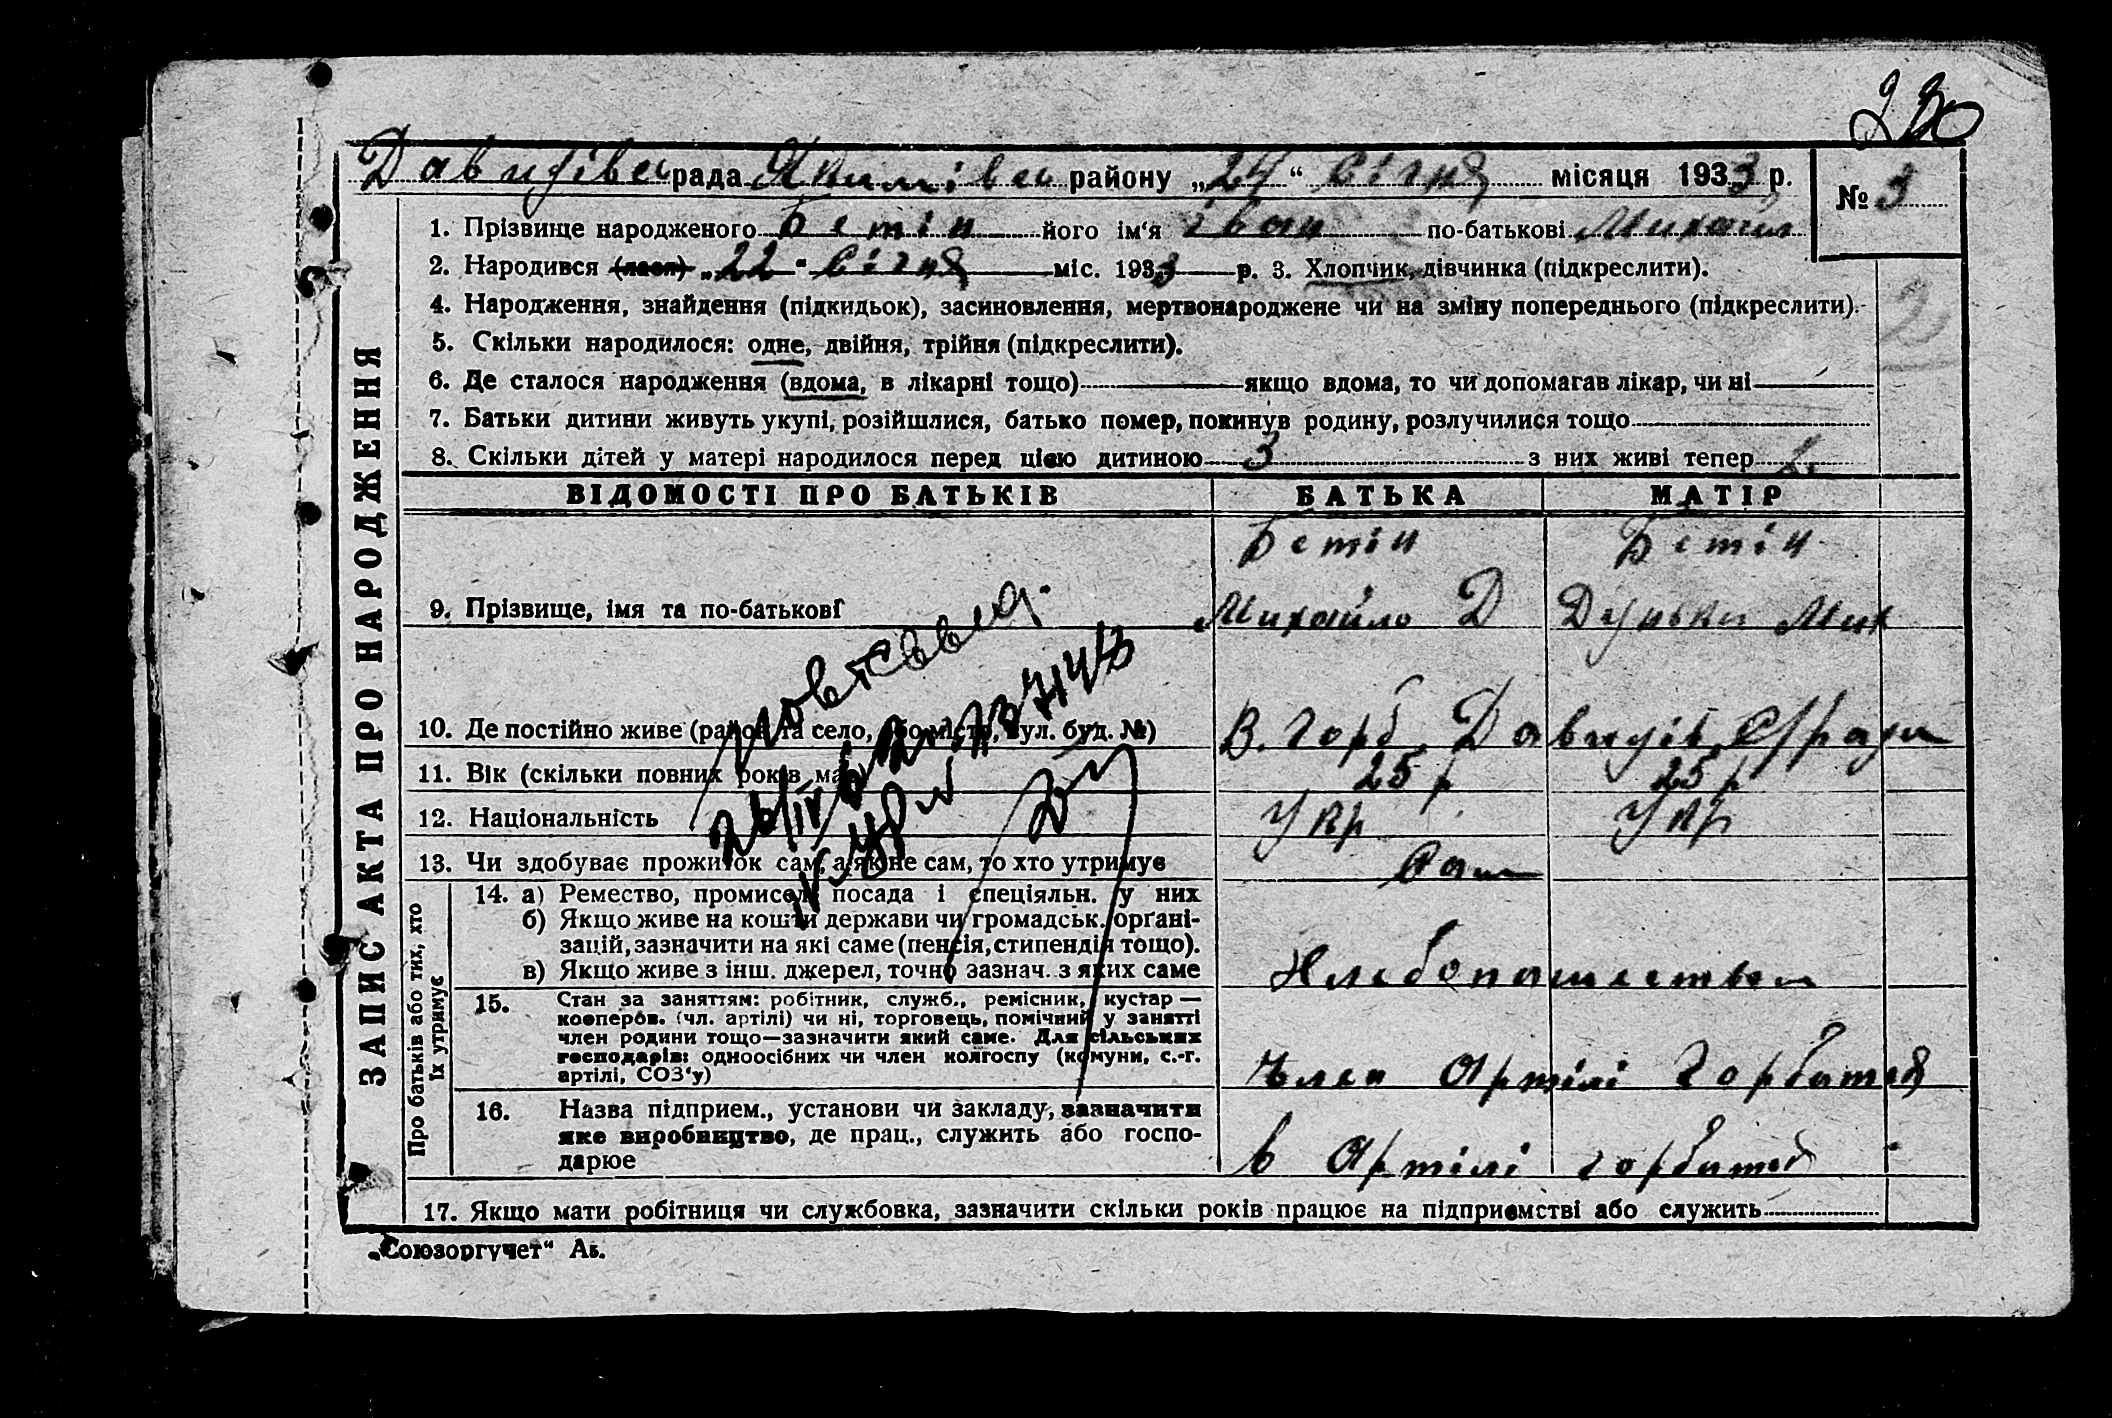 230
Давидівсь рада Якимівсь району „24“ Січня місяця 1933 р. № 3
1. Прізвище народженого Бетін його ім'я Іван по-батькові Михайл
2. Народився (лася) „22“ Січня міс. 1933 р. 3. Хлопчик, дівчинка (підкреслити).
2
4. Народження, знайдення (підкидьок), засиновлення, мертвонароджене чи на зміну попереднього (підкреслити).
5. Скільки народилося: одне, двійня, трійня (підкреслити).
6. Де сталося народження (вдома, в лікарні тощо) якщо вдома, то чи допомагав лікар, чи ні
7. Батьки дитини живуть укупі, розійшлися, батько помер, покинув родину, розлучилися тощо
8. Скільки дітей у матері народилося перед цією дитиною 3 з них живі тепер
ЗАПИС АКТА ПРО НАРОДЖЕННЯ
ВІДОМОСТІ ПРО БАТЬКІВ БАТЬКА МАТІР
Бетін Бетін
9. Прізвище, імя та по-батькові Михайло Д Дунька Мих
10. Де постійно живе (район та село, або місто, вул. буд. №) В. Горб Давидів С/рада
11. Вік (скільки повних років має) 25 р 25 р
12. Національність Укр Укр
13. Чи здобуває прожиток сам, а як не сам, то хто утримує Сам
Про батьків або тих, хто
їх утримує
14. а) Ремество, промисел, посада і спеціяльн. у них
б) Якщо живе на кошти держави чи громадськ. орґані-
зацій, зазначити на які саме (пенсія, стипендія тощо).
в) Якщо живе з інш. джерел, точно зазнач. з яких саме Хлебопашеством
15. Стан за заняттям: робітник, служб., ремісник, кустар —
кооперов. (чл. артілі) чи ні, торговець, помічний у занятті
член родини тощо—зазначити який саме. Для сільських
господарів: одноосібних чи член колгоспу (комуни, с.-г.
артілі, СОЗ'у) Член Артілі Горбатей
16. Назва підприєм., установи чи закладу, зазначити
яке виробництво, де прац., служить або госпо-
дарює в Артілі горбатей
17. Якщо мати робітниця чи службовка, зазначити скільки років працює на підприємстві або служить
„Союзоргучет“ Ав.